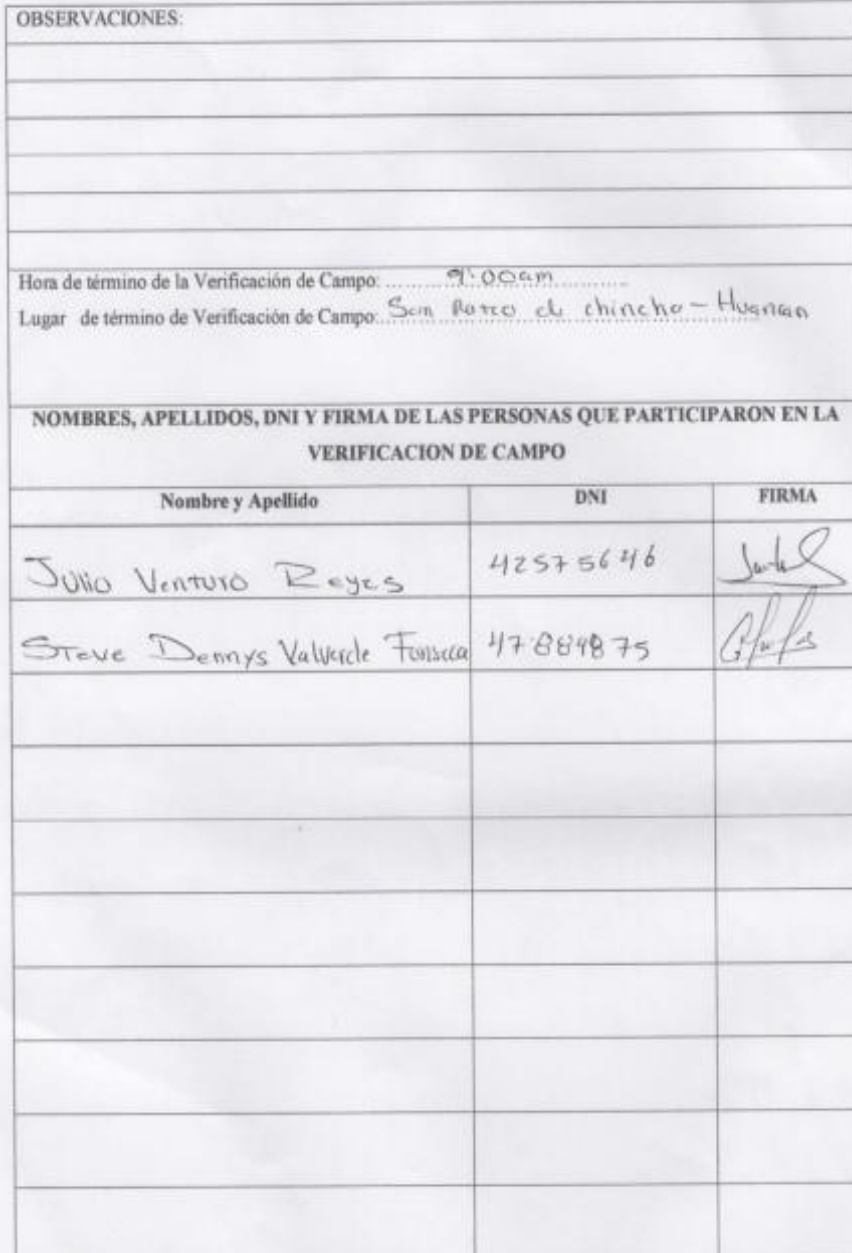 OBSERVACIONES:
Hora de término de la Verificación de Campo: 9:00am
Lugar de término de Verificación de Campo: San de chincho - Huanan
NOMBRES, APELLIDOS, DNI Y FIRMA DE LAS PERSONAS QUE PARTICIPARON EN LA
VERIFICACION DE CAMPO
Nombre y Apellido DNI FIRMA
Julio Venturo Reyes 42575646
Steve Dennys Valverde Fonseca 47884875